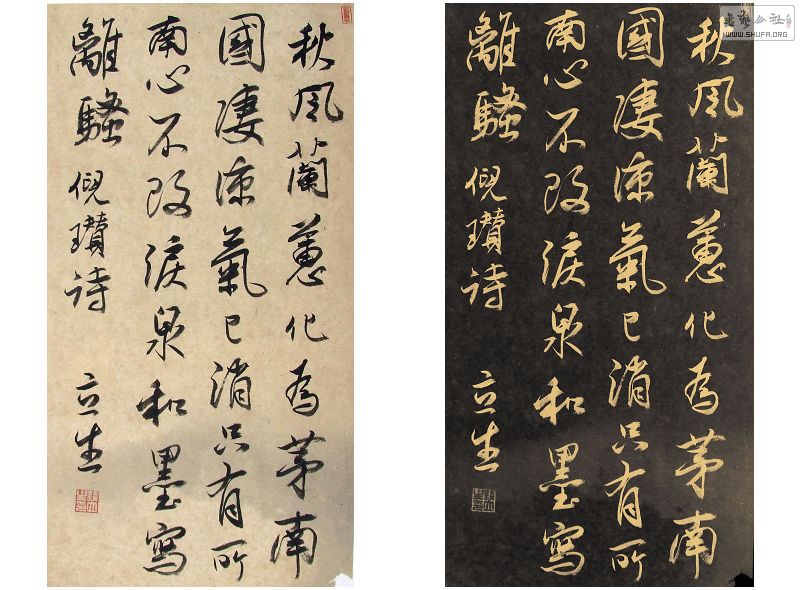 秋風蘭蕙化為茅南
國淒涼氣已消只有所
南心不改淚泉和墨寫
離騷 倪瓚詩 立生
秋風蘭蕙化為茅南
國淒涼氣已消只有所
南心不改淚泉和墨寫
離騷 倪瓚詩 立生
書藝公社
WWW.SHUFA.ORG